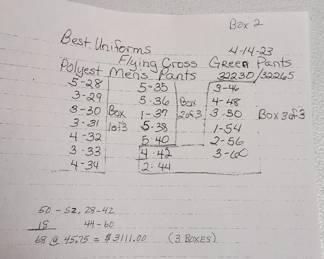 Box 2
Best Uniforms 4-14-23
Flying Cross Green Pants
Polyest Mens Pants 32230/32265
5-28 5-35 3-46
3-29 5-36 Box 4-48
3-30 Box 1-37 2of3 3-50 Box 3of3
3-31 1of3 5-38 1-54
4-32 5-40 2-56
3-33 4-42 3-60
4-34 2-44
50 - SZ. 28-42
18 44-60
68 @ 45.75 = $3111.00 (3 BOXES)